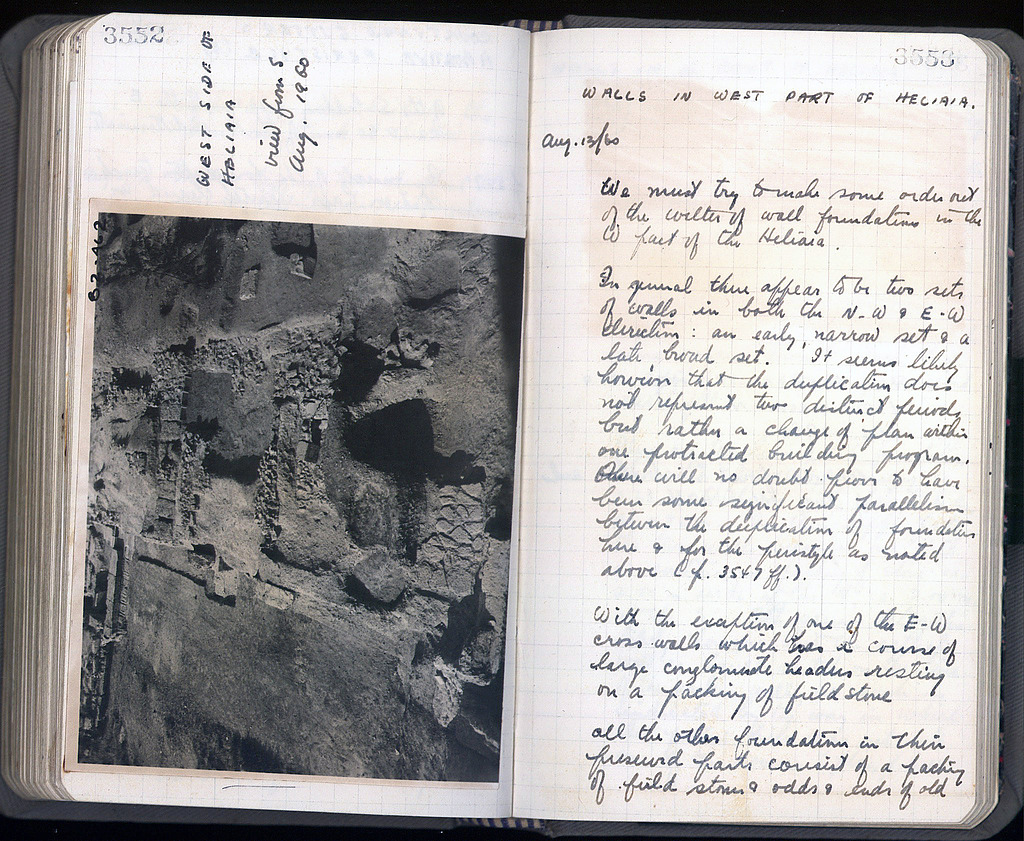 3552
WEST SIDE OF
HELIAIA
view from S.
Aug. 1960
3553
WALLS IN WEST PART OF HELIAIA.
Aug. 13/60
We must try to make some order out
of the welter of wall foundations in the
W part of the Heliaia.
In general there appear to be two sets
of walls in both the N-W & E-W
direction: an early, narrow set & a
late broad set. It seems likely
however that the duplication does
not represent two distinct periods
but rather a change of plan within
one protracted building program.
There will no doubt prove to have
been some significant parallelism
between the duplication of foundations
here & for the peristyle as noted
above (p. 3547 ff.).
With the exception of one of the E-W
cross walls which has a course of
large conglomerate headers resting
on a packing of field stone
all the other foundations in their
preserved parts consist of a packing
of field stones & odds & ends of old